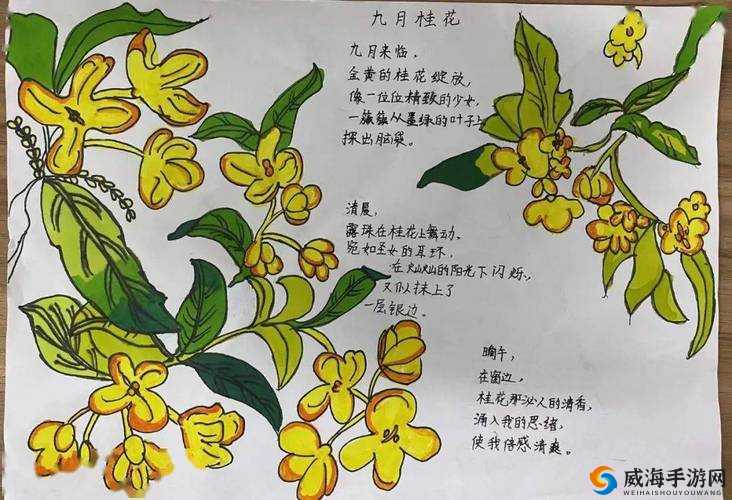 九月桂花
九月来临,
金黄的桂花绽放,
像一位位精致的少女,
一簇簇从墨绿的叶子上
探出脑袋。
清晨,
露珠在桂花上舞动。
宛如圣女的耳环,
在灿灿的阳光下闪烁,
又似抹上了
一层银边。
晌午,
在窗边,
桂花那沁人的清香,
涌入我的思绪,
使我倍感清爽。
威海手游网
WEIHAISHOUYOUWANG